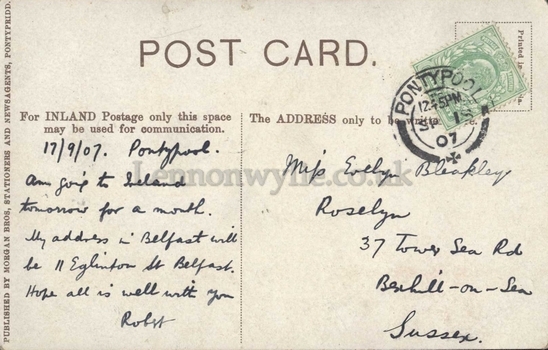 POST CARD.
Printed in
PONTYPOOL
12.45PM
07
For INLAND Postage only this space
may be used for communication.
The ADDRESS only to be written
17/9/07. Pontypool.
Am going to Ireland
tomorrow for a month.
My address in Belfast will
be 11 Eglinton St Belfast.
Hope all is well with you
Robt
Miss Evelyn Bleakley
Roselyn
37 Tower Sea Rd
Bexhill-on-Sea
Sussex.
PUBLISHED BY MORGAN BROS, STATIONERS AND NEWSAGENTS, PONTYPRIDD.
Lennonwylie.co.uk